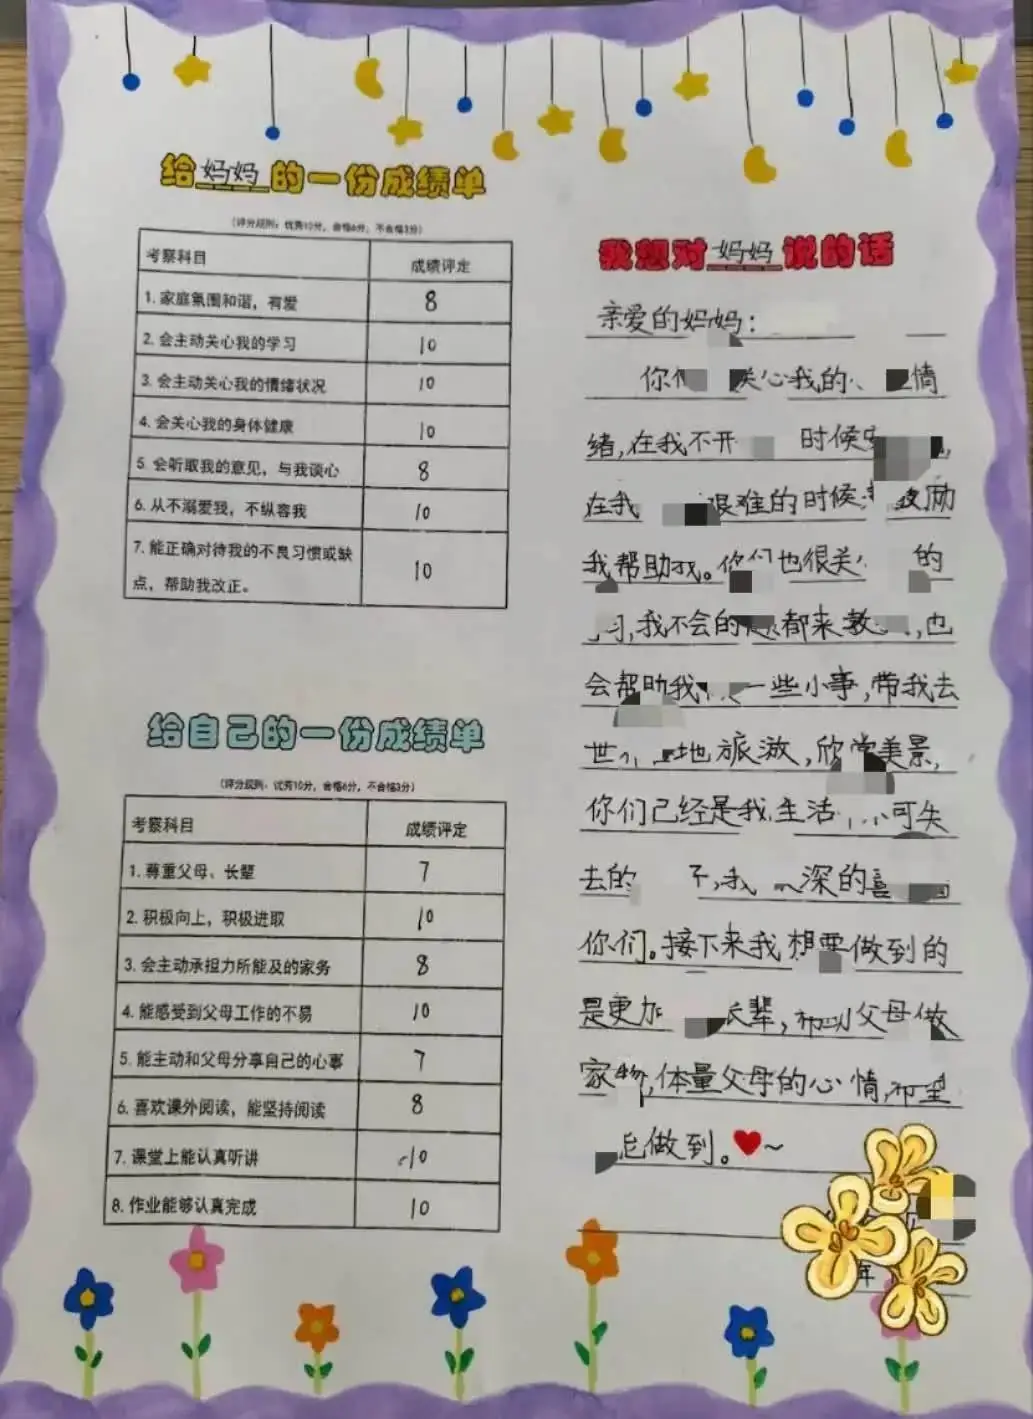 给妈妈的一份成绩单
(评分规则：优秀10分，合格6分，不合格3分)
考察科目 成绩评定
1. 家庭氛围和谐，有爱 8
2. 会主动关心我的学习 10
3. 会主动关心我的情绪状况 10
4. 会关心我的身体健康 10
5. 会听取我的意见，与我谈心 8
6. 从不溺爱我，不纵容我 10
7. 能正确对待我的不良习惯或缺
点，帮助我改正。 10
给自己的一份成绩单
(评分规则：优秀10分，合格6分，不合格3分)
考察科目 成绩评定
1. 尊重父母、长辈 7
2. 积极向上，积极进取 10
3. 会主动承担力所能及的家务 8
4. 能感受到父母工作的不易 10
5. 能主动和父母分享自己的心事 7
6. 喜欢课外阅读，能坚持阅读 8
7. 课堂上能认真听讲 10
8. 作业能够认真完成 10
我想对妈妈说的话
亲爱的妈妈：
你 关心我的 情
绪，在我不开 时候
在我 艰难的时候
我帮助我。你们也很关 的
习，我不会的 都来教 ，也
会帮助我 一些小事，带我去
世 地旅游，欣赏美景，
你们已经是我生活 可失
去的 ，我 深的喜
你们。接下来我想要做到的
是更加 长辈， 父母做
家物，体量父母的心情，希望
做到。❤~
年